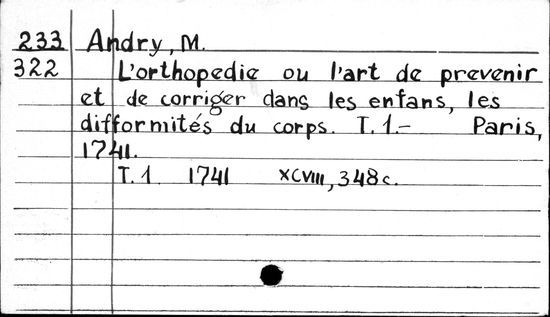 233 Andry, M.
322 L'orthopedie ou l'art de prevenir
et de corriger dans les enfans, les
difformités du corps. T.1.– Paris,
1741.
T.1 1741 XCVIII, 348 c.